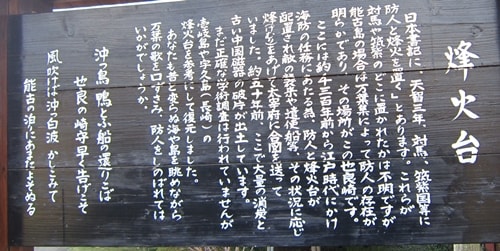 烽火台
日本書紀に、天智三年、対馬、筑紫国等に
防人と烽火を置く」とあります。これらが
対馬や筑紫のどこに置かれたかは不明ですが
能古島の場合は万葉集によって防人の存在が
明らかであり、その場所がこの也良崎です。
ここには約千三百年前から江戸時代にかけ
海防の任務にあたる為、防人と烽火台が
配置され敵の襲来や遣唐船等、その状況に応じ
烽火をあげて太宰府に合図を送って
いました。約五十年前、ここで大量の消炭と
古い中国磁器の破片が出土しています。
まだ正確な学術調査は行われていませんが
壱岐島や宇久島(長崎)の
烽火台を参考にして復元しました。
あなたも昔と変らぬ海や島を眺めながら
万葉の歌を口ずさみ、防人をしのばれては
いかがでしょうか。
沖つ鳥 鴨とふ船の還りこば
也良の崎守 早く告げこそ
風吹けば 沖つ白波 かしこみて
能古の泊に あまたよそぬる